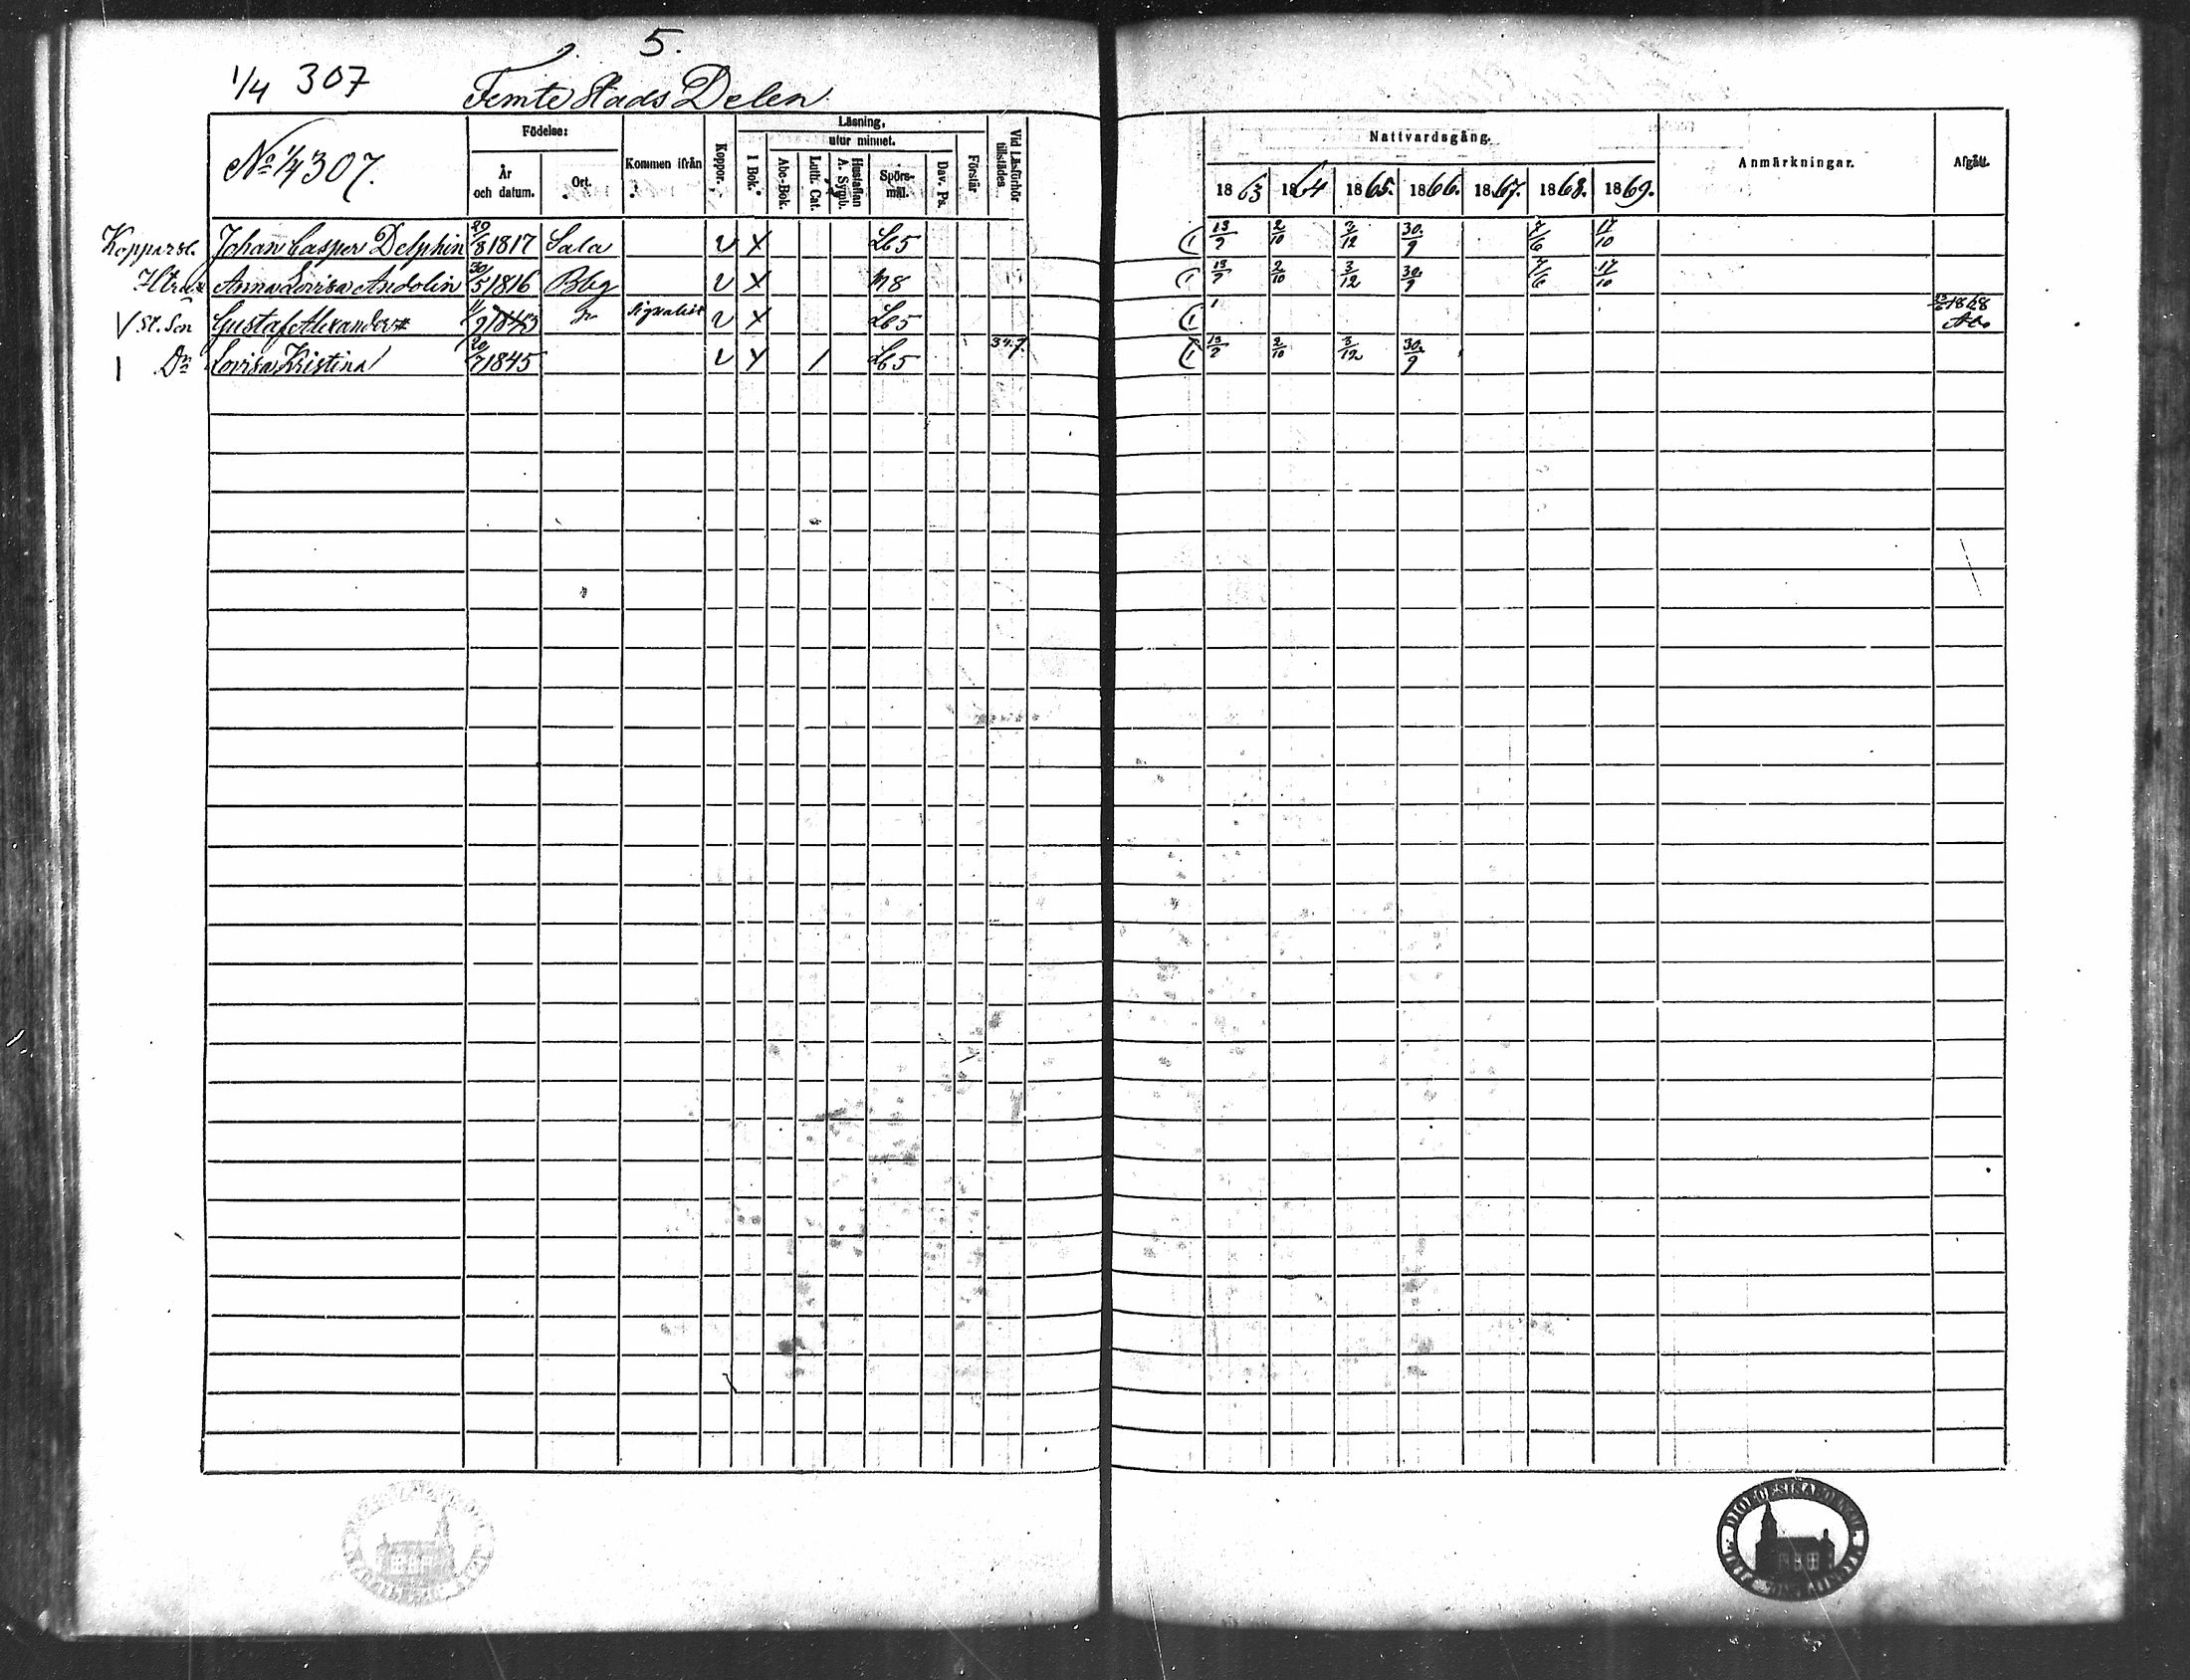 5.
1/4 307 Femte Stads Delen
No 1/4 307. Födelse: År och datum. Ort. Kommen ifrån Koppor. Läsning, I Bok. utur minnet. Abc-Bok. Luth. Cat. Hustaflan A. Symb. Spörs-mål. Dav. Ps. Förstår Vid Läsförhör tillstädes Nattvardsgång. 1863 1864 1865. 1866. 1867. 1868. 1869. Anmärkningar. Afgått.
Kopparsl. Johan Casper Delphin 20/8 1817 Sala v X Lb 5 13/7 2/10 3/12 30/9 7/6 17/10
Htru Anna Lovisa Andolin 30/5 1816 Bbg v X N 8 13/7 2/10 3/12 30/9 7/6 17/10
V St. Son Gustaf Alexander 1843 Signalist v X Lb 5 1 1868 Åbo
Dr Lovisa Kristina 20/7 1845 v X / Lb 5 13/7 2/10 3/12 30/9